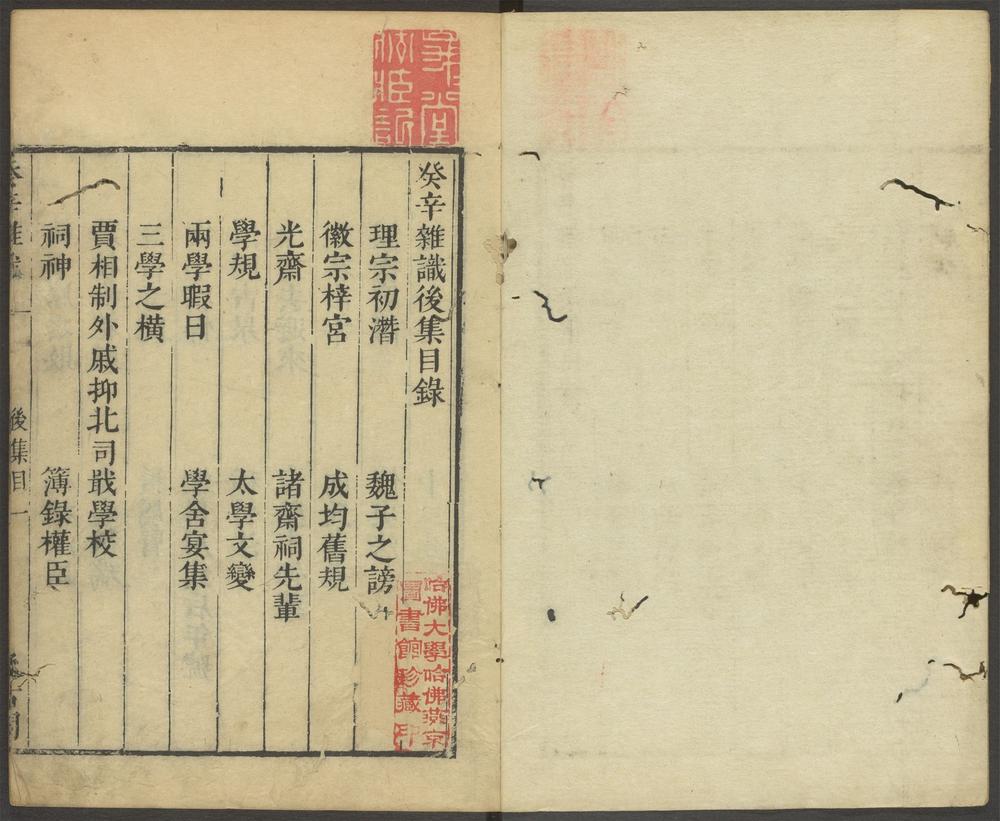 癸辛雜識後集目錄
理宗初潛 魏子之謗
徽宗梓宮 成均舊規
光齋 諸齋祠先輩
學規 太學文變
兩學暇日 學舍宴集
三學之橫
賈相制外戚抑北司戢學校
祠神 簿錄權臣
後集目 一
哈佛大學哈佛燕京
圖書館珍藏印